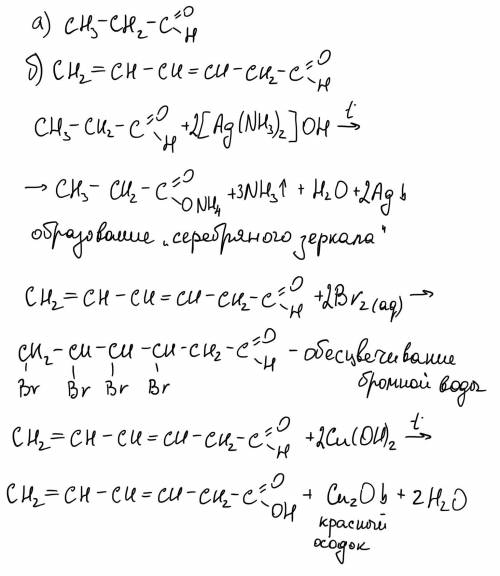 а) CH₃-CH₂-C=O H
б) CH₂=CH-CH=CH-CH₂-C=O H
CH₃-CH₂-C=O H +2[Ag(NH₃)₂]OH t→
→ CH₃-CH₂-C=O ONH₄ +3NH₃↑ + H₂O +2Ag↓
образование „серебряного зеркала"
CH₂=CH-CH=CH-CH₂-C=O H +2Br₂(aq) →
CH₂-CH-CH-CH-CH₂-C=O H - обесцвечивание
Br Br Br Br бромной воды
CH₂=CH-CH=CH-CH₂-C=O H +2Cu(OH)₂ t→
CH₂=CH-CH=CH-CH₂-C=O OH + Cu₂O↓ + 2H₂O
красный
осадок